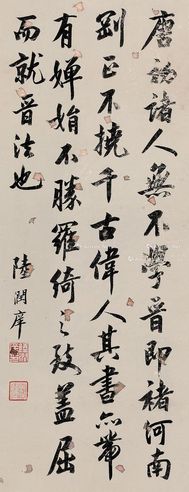 唐初諸人無不學晉即褚何南
剛正不撓千古偉人其書亦帶
有嬋娟不勝羅綺之致蓋屈
而就晉法也
陸潤庠